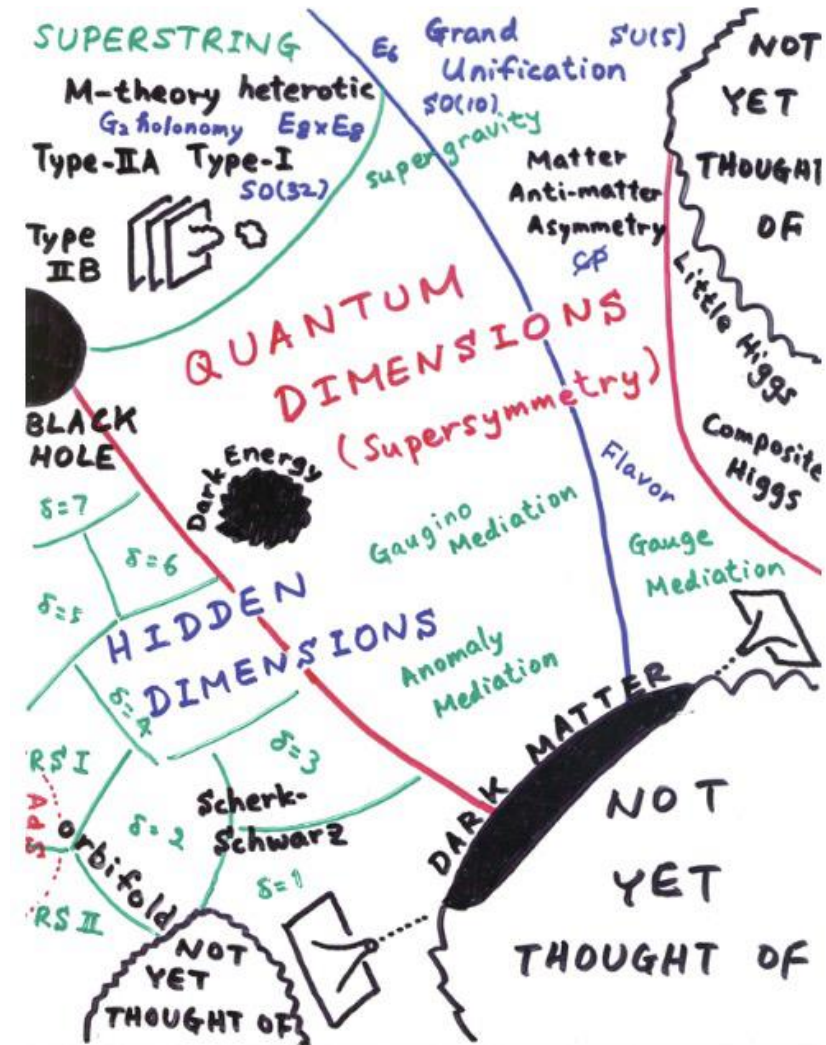 SUPERSTRING
M-theory heterotic
G₂ holonomy E₈×E₈
Type-IIA Type-I
SO(32)
Type
IIB
E₆
Grand
Unification
SU(5)
SO(10)
supergravity
Matter
Anti-matter
Asymmetry
CP
NOT
YET
THOUGHT
OF
Little Higgs
Composite
Higgs
QUANTUM
DIMENSIONS
(Supersymmetry)
BLACK
HOLE
Dark Energy
Flavor
Gaugino
Mediation
Gauge
Mediation
Anomaly
Mediation
HIDDEN
DIMENSIONS
δ=7
δ=6
δ=5
δ=4
δ=3
RS I
AdS
orbifold
RS II
δ=2
Scherk-
Schwarz
δ=1
DARK MATTER
NOT
YET
THOUGHT OF
NOT
YET
THOUGHT OF